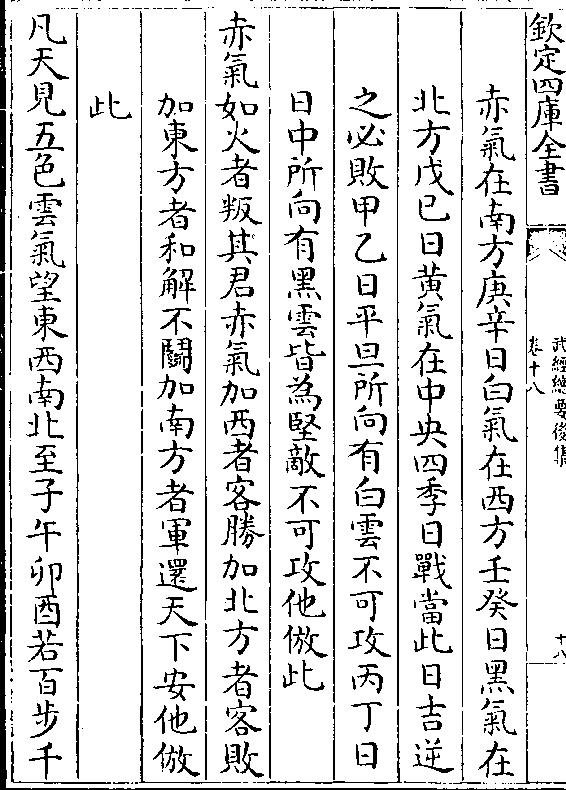 欽定四庫全書
武經總要後集
卷十八
十八
赤氣在南方庚辛日白氣在西方壬癸日黑氣在
北方戊巳日黄氣在中央四季日戰當此日吉逆
之必敗甲乙日平旦所向有白雲不可攻丙丁日
日中所向有黑雲皆為堅敵不可攻他倣此
赤氣如火者叛其君赤氣加西者客勝加北方者客敗
加東方者和解不鬭加南方者軍還天下安他倣
此
凡天見五色雲氣望東西南北至子午卯酉若百步千